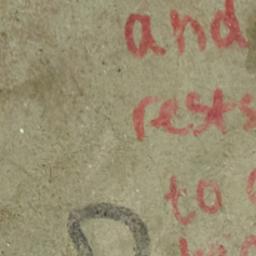 and
rests
to